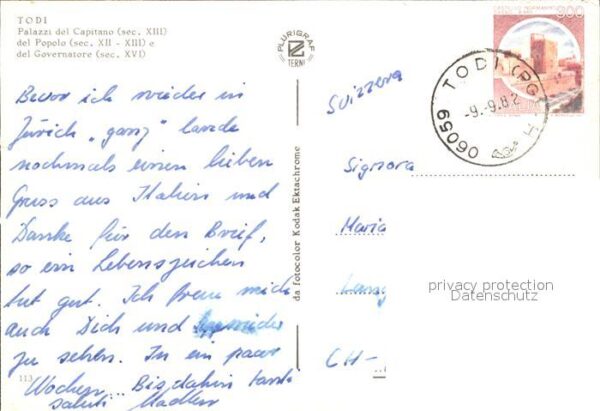 TODI
Palazzi del Capitano (sec. XIII)
del Popolo (sec. XII - XIII) e
del Governatore (sec. XVI)
PLURIGRAF
TERNI
300
TODI (PG)
-9.-9.82
06059
Bevor ich wieder in
Zürich „ganz“ lande
nochmals einen lieben
Gruss aus Italien und
Danke für den Brief,
so ein Lebenszeichen
tut gut. Ich freue mich
auch Dich und
zu sehen. In ein paar
Wochen... Bis dahin tanti
saluti
113
da fotocolor Kodak Ektachrome
Svizzera
Signora
Maria
CH-
privacy protection
Datenschutz